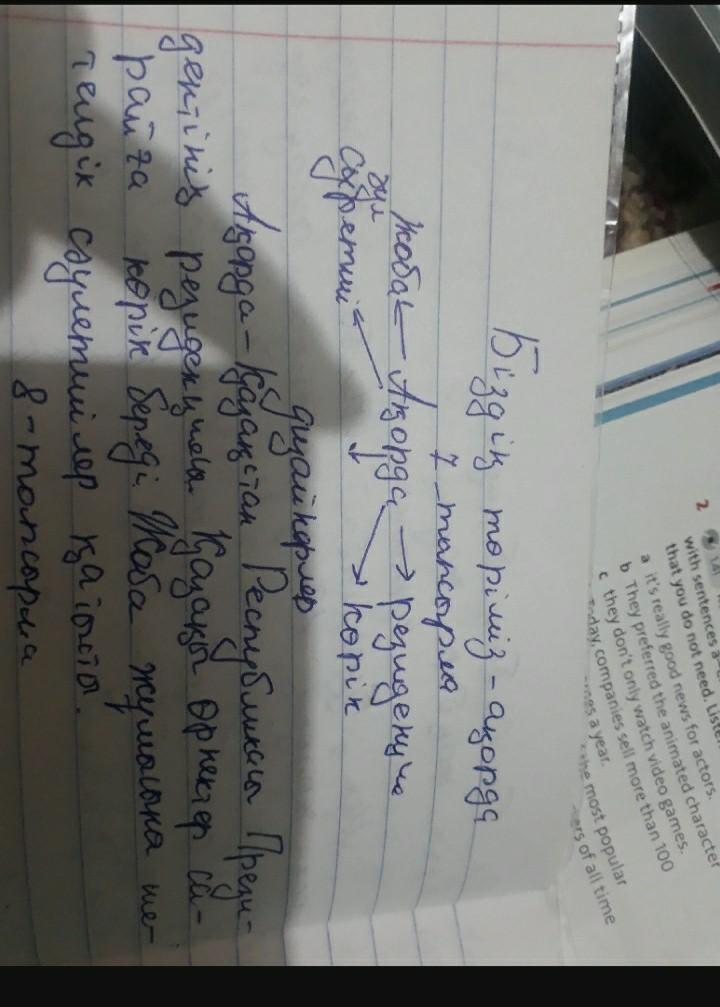 Біздің төріміз - ақорда
7 - тапсырма
жоба ← Ақорда → резиденция
зул
сәулетші көрік
дизайнерлер
Ақорда - Қазақстан Республикасы Прези-
дентінің резиденциясы. Қазақы өрнектер са-
райға көрік береді. Жоба жұмысына ше-
телдік сәулетшілер қатысты.
8 - тапсырма
2
with sentences a-
that you do not need. Liste
a it's really good news for actors.
b They preferred the animated character
c they don't only watch video games.
day, companies sell more than 100
a year.
the most popular
ers of all time